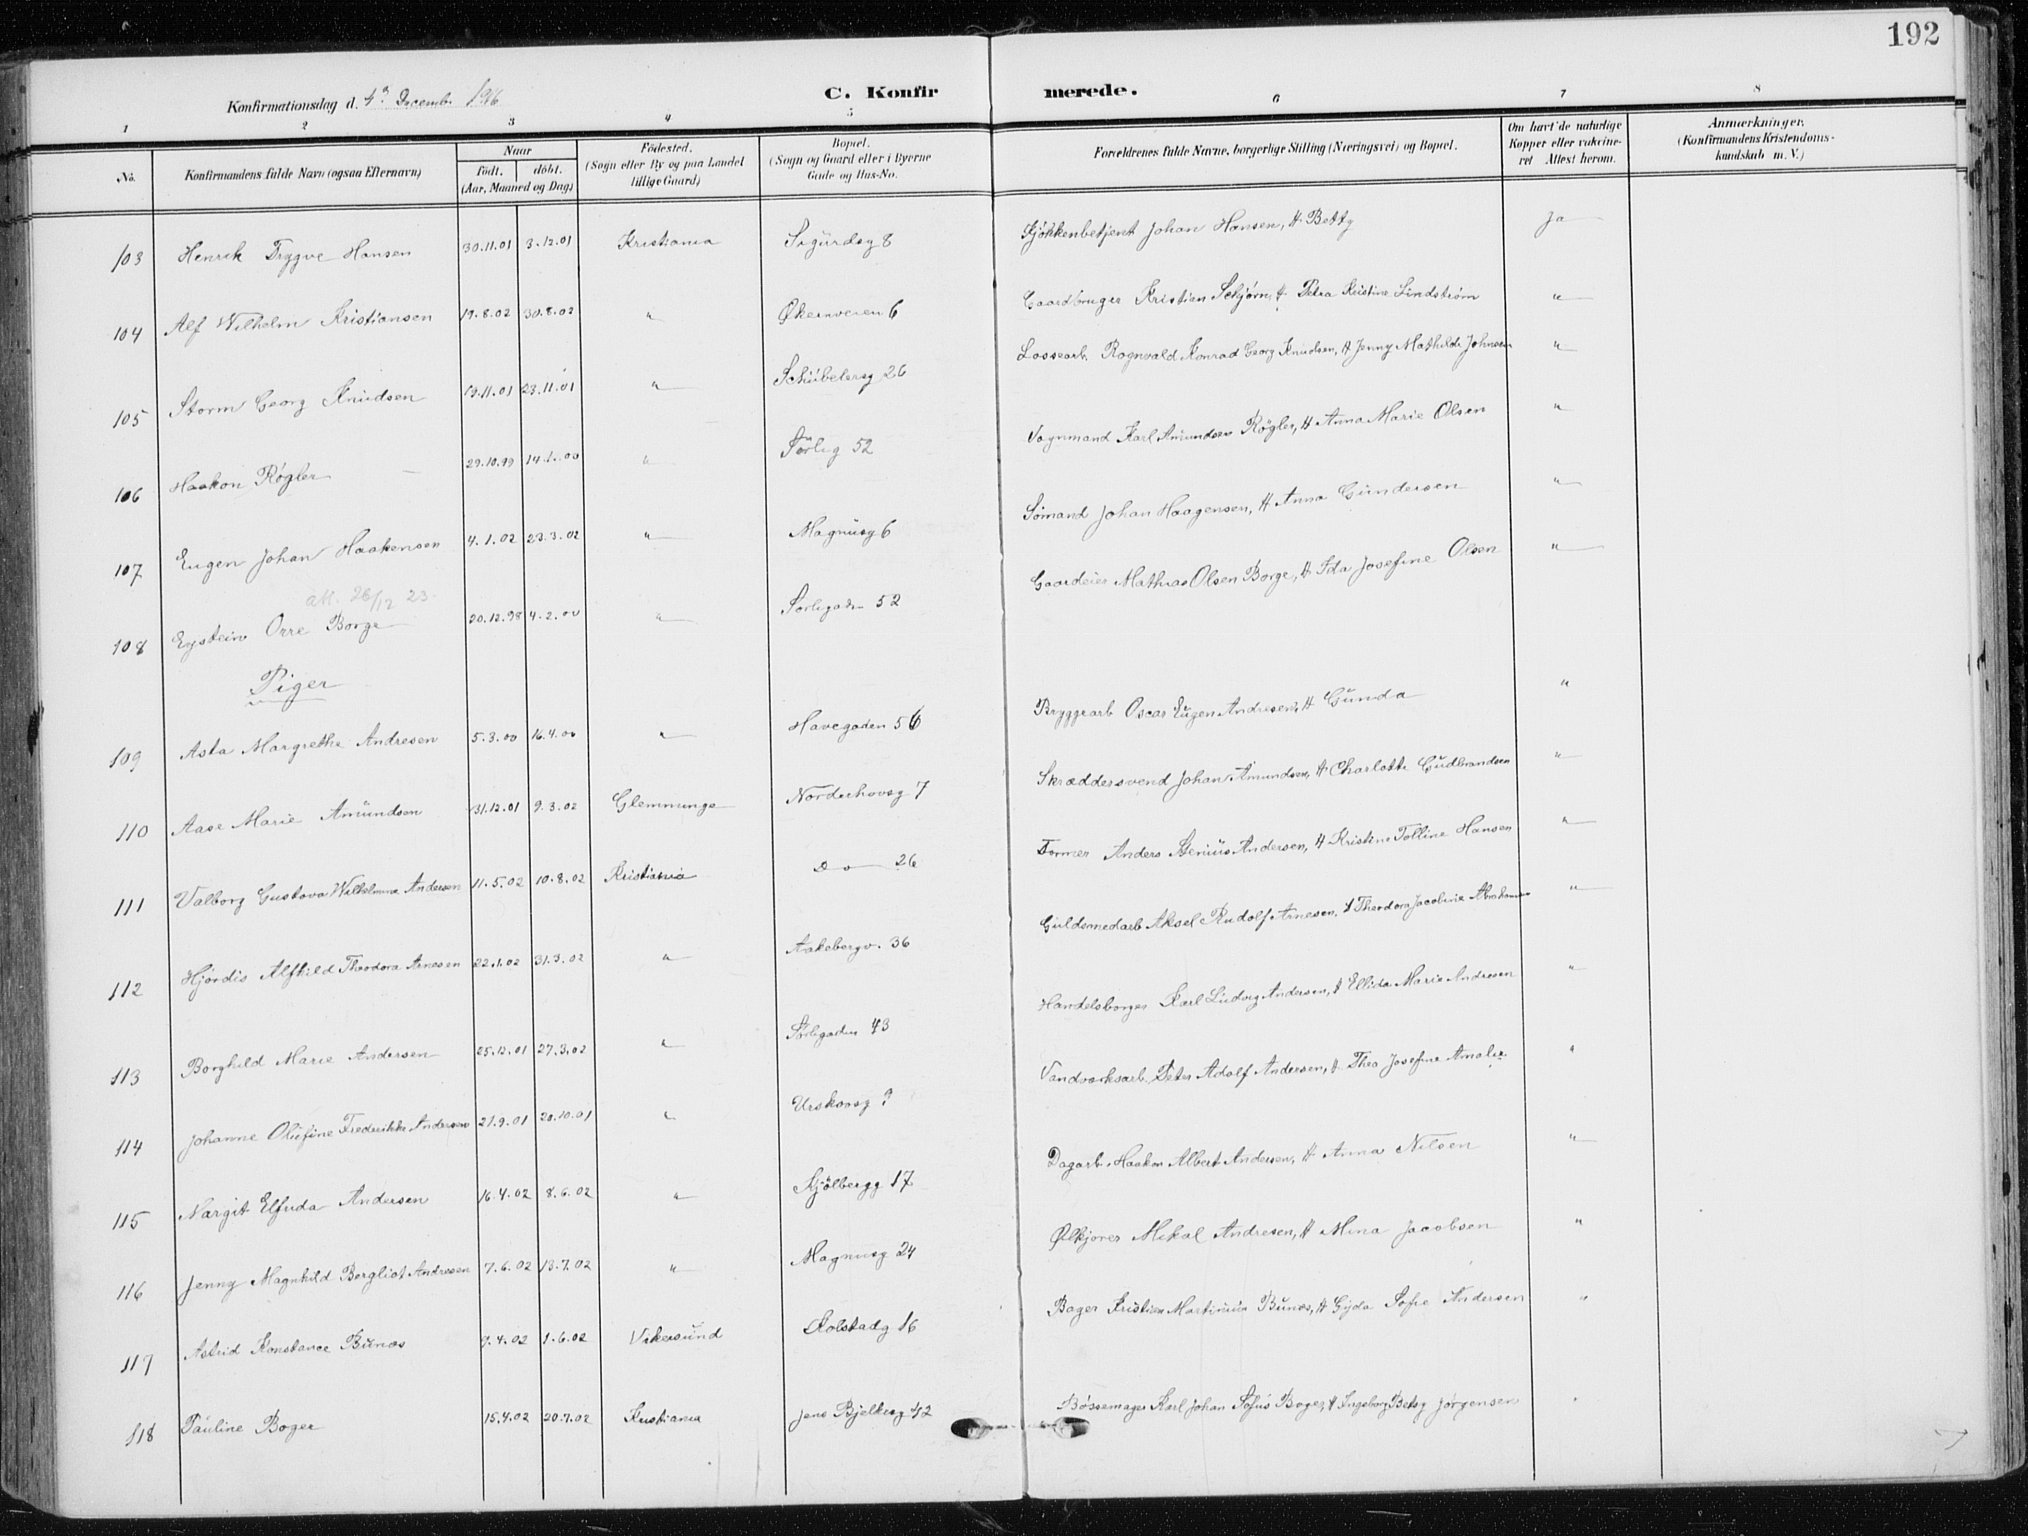 192
Konfirmationsdag d. 4de Decemb. 1916
C. Konfirmerede.
1 2 3 4 5 6 7 8
No.
Konfirmandens fulde Navn (ogsaa Efternavn)
Naar
født. døbt.
(Aar, Maaned og Dag)
Fødested.
(Sogn eller By og paa Landet
tillige Gaard)
Bopæl.
(Sogn og Gaard eller i Byerne
Gade og Hus-No.
Forældrenes fulde Navne, borgerlige Stilling (Næringsvei) og Bopæl.
Om havt de naturlige
Kopper eller vakcine-
ret Attest herom.
Anmærkninger.
(Konfirmandens Kristendoms-
kundskab m. V.)
103 Henrik Trygve Hansen 30.11.01 3.12.01 Kristiania Sigurdsg 8 Kjøkkenbetjent Johan Hansen, H. Betty Ja
104 Alf Wilhelm Kristiansen 19.8.02 30.8.02 " Økernveien 6 Gaardbruger Kristian Schjørn, H. Petra Kristine Lindstrøm "
105 Storm Georg Knudsen 19.11.01 23.11.01 " Schübelersg 26 Lossearb. Rognvald Konrad Georg Knudsen, H Jenny Mathilde Johnsen "
106 Haakon Røgler 29.10.99 14.1.00 " Sørlig 52 Vognmand Karl Amundsen Røgler, H Anna Marie Olsen "
107 Eugen Johan Haakensen 4.1.02 23.3.02 " Magnusg 6 Sømand Johan Haagensen, H Anna Gundersen "
att. 26/12 23.
108 Eystein Orre Borge 20.12.98 4.2.00 " Sørligaden 52 Gaardeier Mathias Olsen Borge, H Ida Josefine Olsen "
Piger
109 Asta Margrethe Andresen 5.3.00 16.4.00 " Havegaden 56 Bryggearb Oscar Eugen Andresen, H Gunda "
110 Aase Marie Amundsen 31.12.01 9.3.02 Glemminge Norderhovsg 7 Skræddersvend Johan Amundsen, H Charlotte Gudbrandsen "
111 Valborg Gustava Wilhelmine Andersen 11.5.02 10.8.02 Kristiania Do 26 Former Anders Stenius Andersen, H Kristine Tolline Hansen "
112 Hjørdis Alfhild Theodora Arnesen 22.1.02 31.3.02 " Aakebergv. 36 Guldsmedarb Aksel Rudolf Arnesen, H Theodora Jacobine Abrahamsen "
113 Borghild Marie Andersen 25.12.01 27.3.02 " Sørligaden 43 Handelsborger Karl Ludvig Andersen, H Ellida Marie Andresen "
114 Johanne Olufine Frederikke Andersen 21.9.01 20.10.01 " Urskovsg 9 Vandværksarb. Peter Adolf Andersen, H. Thea Josefine Amalie "
115 Margit Elfrida Andersen 16.4.02 8.6.02 " Kjølbergg 17 Dagarb. Haakon Albert Andersen, H Anna Nilsen "
116 Jenny Magnhild Bergliot Andresen 7.6.02 13.7.02 " Magnusg 24 Ølkjører Mikal Andresen, H Mina Jacobsen "
117 Astrid Konstance Bunæs 9.4.02 1.6.02 Vikersund Kolstadg 16 Bager Kristian Martinius Bunæs, H Gyda Sofie Andersen "
118 Pauline Boger 15.4.02 20.7.02 Kristiania Jens Bjelkesg 42 Bøssemager Karl Johan Sofus Boger, H Ingeborg Betsy Jørgensen "